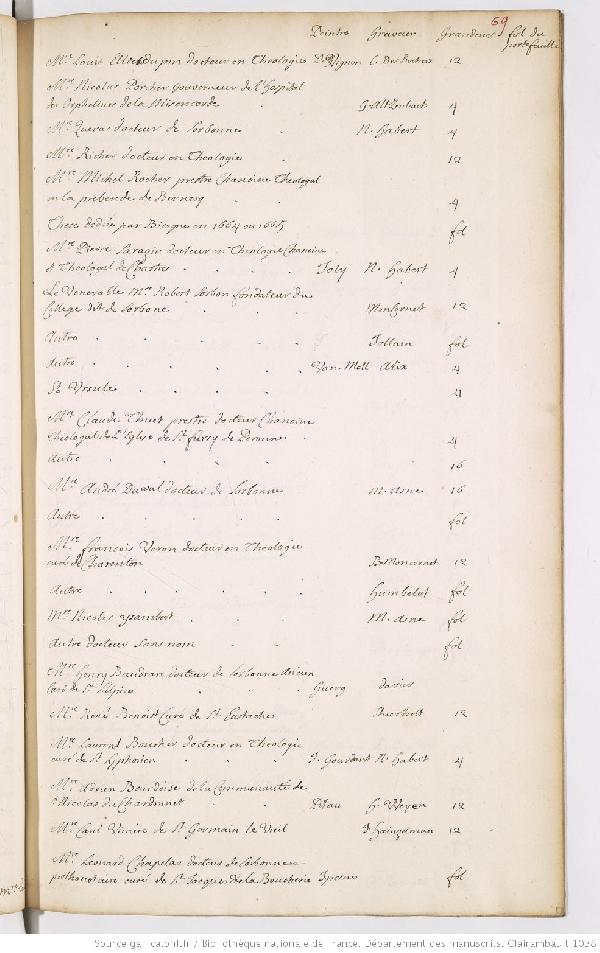 69
Peintre Graveur Grandeur fol du
portefeuille
Mre Louis Ellies du pin docteur en Theologie Vignon 12
Mre Nicolas Porcher Gouverneur de l'hospital
des Orphelines de la Misericorde 4
Mre Queras docteur de Sorbonne N. Habert 4
Mre Richer docteur en Theologie 12
Mre Michel Rocher prestre Chanoine Theologal
en la prebende de 4
These dediée par en 1664 ou 1665 fol
Mre Pierre Sarazin docteur en Theologie Chanoine
et Theologal de Chartres Joly N. Habert 4
Le Venerable Mre Robert Sorbon fondateur du
College dit de Sorbone Moncornet 12
Autre Jollain fol
Autre Van-Moll Alix 4
Ste Ursule 4
Mre Claude prestre docteur Chanoine
Theologal de l'Eglise de St fursy de Peronne 4
Autre 16
Mre André Duval docteur de Sorbonne M. asne 16
Autre fol
Mre francois Veron docteur en Theologie
curé de Charenton B Moncornet 12
Autre Humbelot fol
Mre Nicolas ysambert M. asne fol
Autre docteur sans nom fol
Mre Henry Baudran docteur de Sorbonne Ancien
Curé de St Sulpice
Mre René Benoist Curé de St Eustache 12
Mre Laurent Boucher docteur en Theologie
curé de St J. Gourdant N. Habert 4
Mre Adrien Bourdoise de la Communauté de
St Nicolas du Chardonnet 12
Mre Vicaire de St Germain le Vieil J Hainzelman 12
Mre Leonard Chapelas docteur de Sorbonne
prothonotaire curé de St Jacques de la Boucherie fol
Source gallica.bnf.fr / Bibliothèque nationale de France. Département des manuscrits. Clairambault 1038